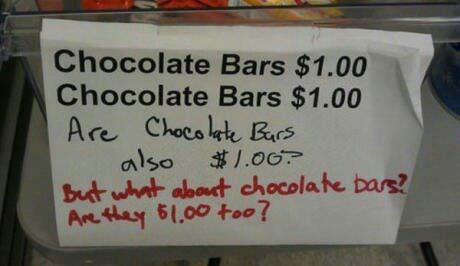 Chocolate Bars $1.00
Chocolate Bars $1.00
Are Chocolate Bars
also $1.00?
But what about chocolate bars?
Are they $1.00 too?